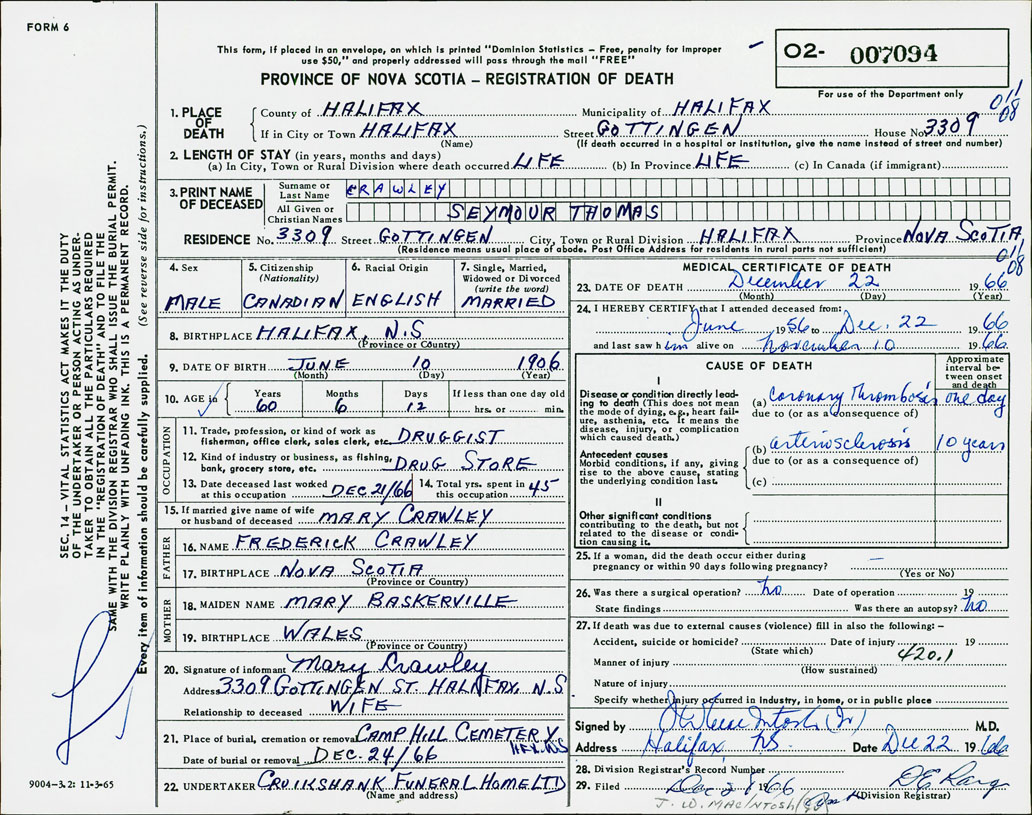 FORM 6
This form, if placed in an envelope, on which is printed "Dominion Statistics – Free, penalty for improper
use $50," and properly addressed will pass through the mail "FREE"
PROVINCE OF NOVA SCOTIA – REGISTRATION OF DEATH
O2- 007094
For use of the Department only
011
08
1. PLACE OF DEATH
County of HALIFAX Municipality of HALIFAX
If in City or Town HALIFAX Street GOTTINGEN House No. 3309
(Name) (If death occurred in a hospital or institution, give the name instead of street and number)
2. LENGTH OF STAY (in years, months and days)
(a) In City, Town or Rural Division where death occurred LIFE (b) In Province LIFE (c) In Canada (if immigrant)
3. PRINT NAME OF DECEASED
Surname or Last Name CRAWLEY
All Given or Christian Names SEYMOUR THOMAS
RESIDENCE No. 3309 Street GOTTINGEN City, Town or Rural Division HALIFAX Province NOVA SCOTIA
(Residence means usual place of abode. Post Office Address for residents in rural parts not sufficient)
011
08
4. Sex MALE
5. Citizenship (Nationality) CANADIAN
6. Racial Origin ENGLISH
7. Single, Married, Widowed or Divorced (write the word) MARRIED
8. BIRTHPLACE HALIFAX, N.S
(Province or Country)
9. DATE OF BIRTH JUNE 10 1906
(Month) (Day) (Year)
10. AGE in Years 60 Months 6 Days 12 If less than one day old hrs. or min.
OCCUPATION
11. Trade, profession, or kind of work as
fisherman, office clerk, sales clerk, etc. DRUGGIST
12. Kind of industry or business, as fishing,
bank, grocery store, etc. DRUG STORE
13. Date deceased last worked at this occupation DEC 21/66
14. Total yrs. spent in this occupation 45
15. If married give name of wife
or husband of deceased MARY CRAWLEY
FATHER
16. NAME FREDERICK CRAWLEY
17. BIRTHPLACE NOVA SCOTIA
(Province or Country)
MOTHER
18. MAIDEN NAME MARY BASKERVILLE
19. BIRTHPLACE WALES
(Province or Country)
20. Signature of informant Mary Crawley
Address 3309 GOTTINGEN ST. HALIFAX, N.S
Relationship to deceased WIFE
21. Place of burial, cremation or removal CAMP HILL CEMETERY
HFX. NS
Date of burial or removal DEC. 24/66
22. UNDERTAKER CRUIKSHANK FUNERAL HOME LTD
(Name and address)
MEDICAL CERTIFICATE OF DEATH
23. DATE OF DEATH December 22 1966
(Month) (Day) (Year)
24. I HEREBY CERTIFY that I attended deceased from:
June 1956 to Dec. 22 1966
and last saw him alive on November 10 1966
CAUSE OF DEATH
Approximate interval between onset and death
I
Disease or condition directly leading to death (This does not mean the mode of dying, e.g., heart failure, asthenia, etc. It means the disease, injury, or complication which caused death.)
(a) Coronary Thrombosis one day
due to (or as a consequence of)
Antecedent causes
Morbid conditions, if any, giving rise to the above cause, stating the underlying condition last.
(b) arteriosclerosis 10 years
due to (or as a consequence of)
(c)
II
Other significant conditions
contributing to the death, but not related to the disease or condition causing it.
25. If a woman, did the death occur either during
pregnancy or within 90 days following pregnancy? —
(Yes or No)
26. Was there a surgical operation? no Date of operation 19
State findings Was there an autopsy? no
27. If death was due to external causes (violence) fill in also the following: –
Accident, suicide or homicide? Date of injury 19
(State which) 420.1
Manner of injury
(How sustained)
Nature of injury
Specify whether injury occurred in industry, in home, or in public place
Signed by M.D.
Address Halifax, NS. Date Dec 22 1966
28. Division Registrar's Record Number
29. Filed Dec 28 1966
(Division Registrar)
J. W. MACINTOSH
SEC. 14 – VITAL STATISTICS ACT MAKES IT THE DUTY
OF THE UNDERTAKER OR PERSON ACTING AS UNDER-
TAKER TO OBTAIN ALL THE PARTICULARS REQUIRED
IN THE "REGISTRATION OF DEATH" AND TO FILE THE
SAME WITH THE DIVISION REGISTRAR WHO SHALL ISSUE THE BURIAL PERMIT.
WRITE PLAINLY WITH UNFADING INK. THIS IS A PERMANENT RECORD.
Every item of information should be carefully supplied. (See reverse side for instructions.)
9004-3.2: 11-3-65